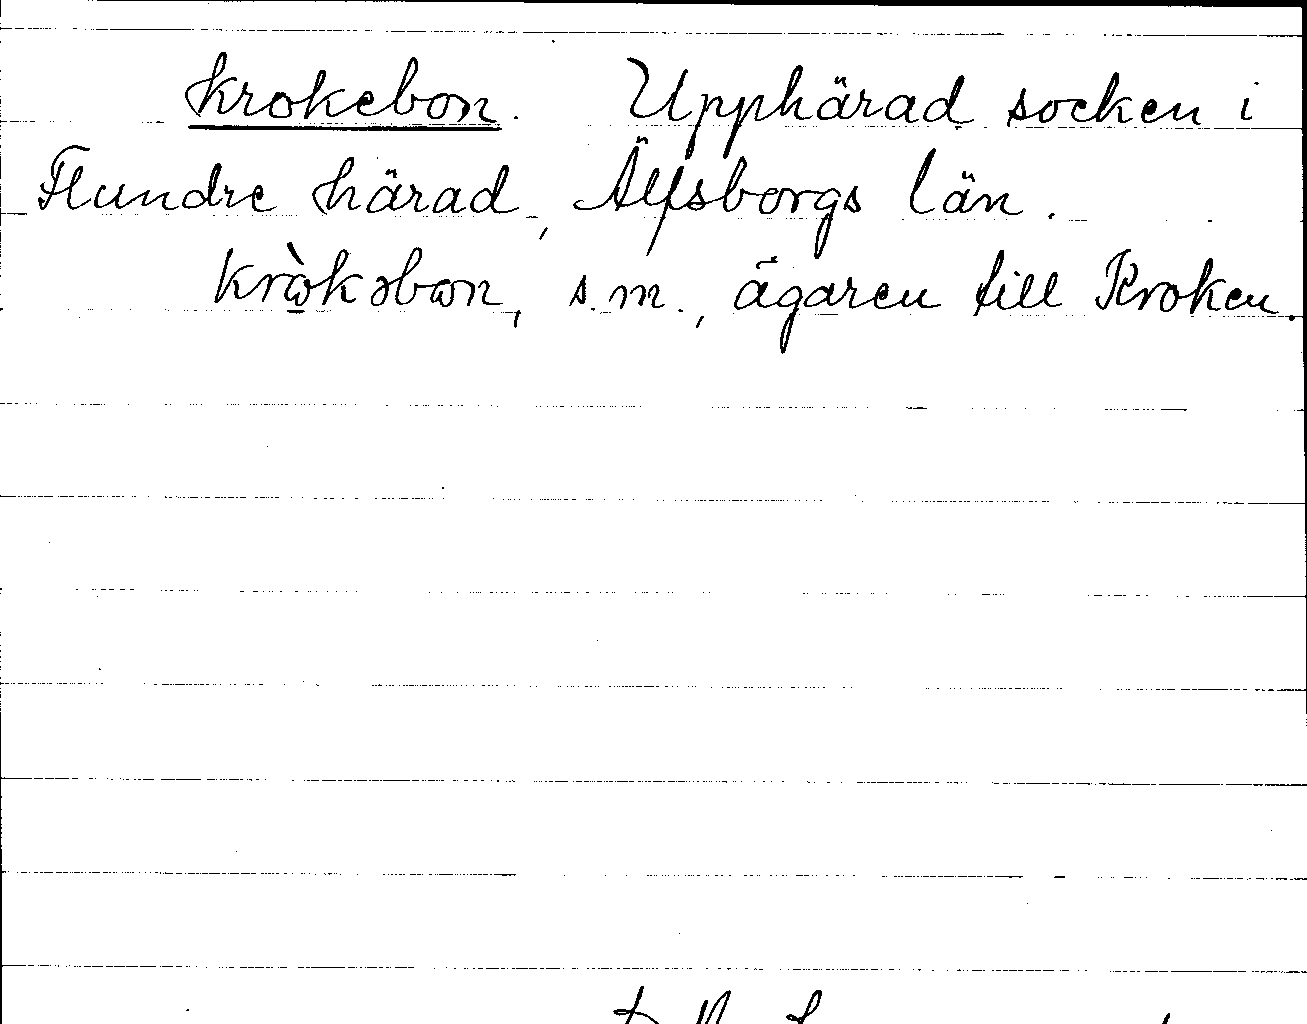 krokebon. Upphärad socken i
Flundre härad, Älfsborgs län.
kròkəbon, s.m., ägaren till Kroken.